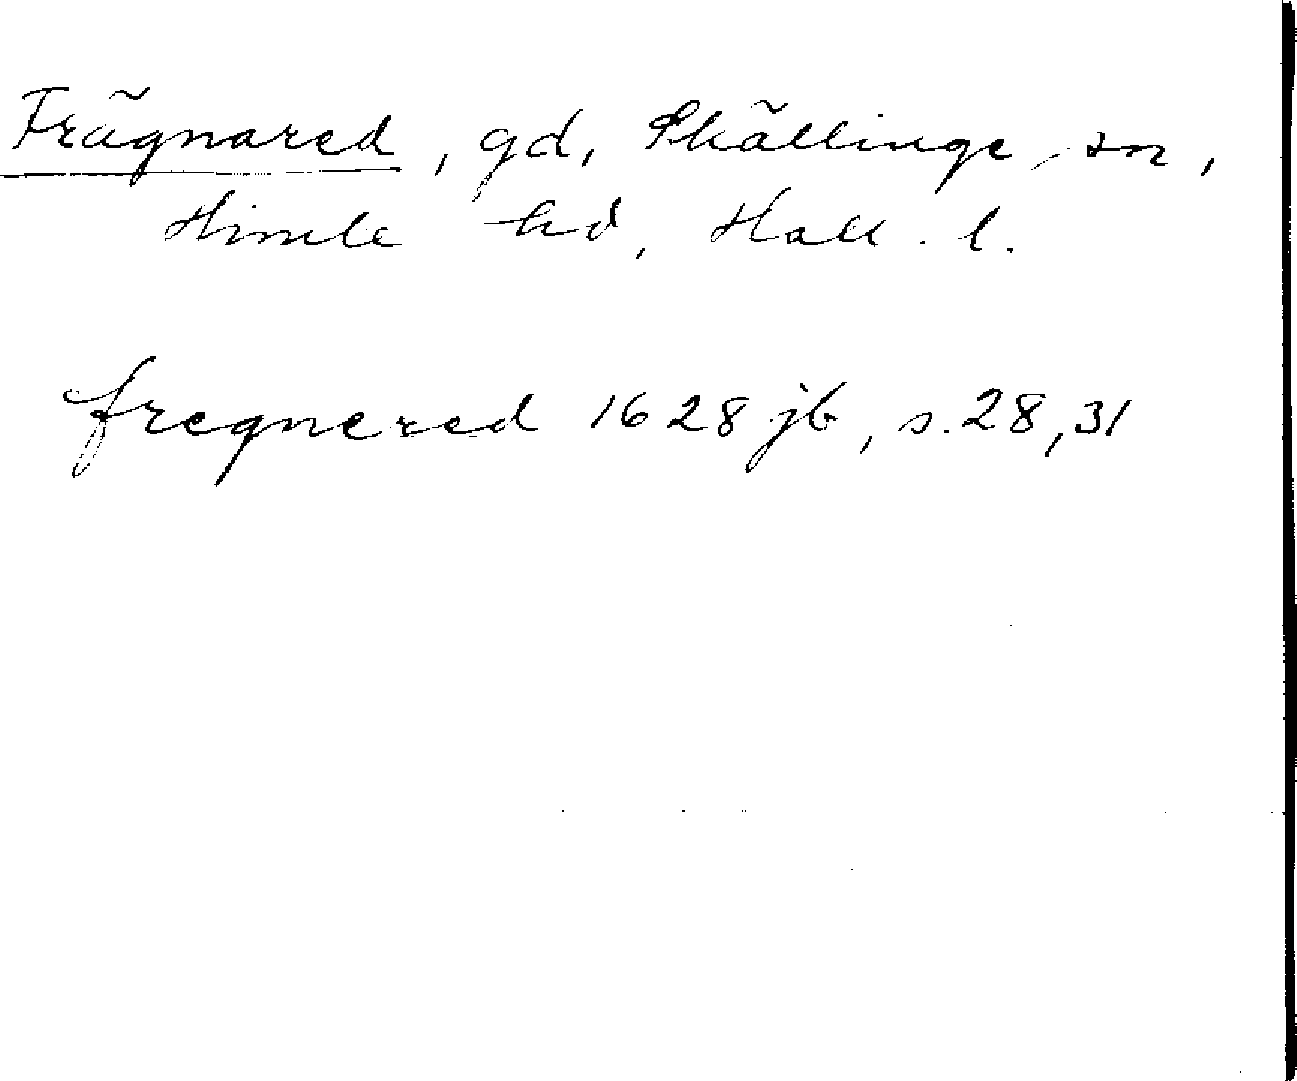 Frägnared, gd, Skällinge sn,
Himle hd, Hall. l.
fregnered 1628 jb, s. 28, 31